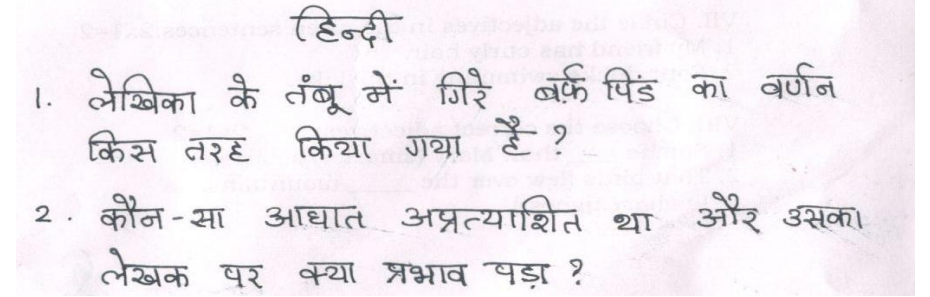 हिन्दी
1. लेखिका के तंबू में गिरे बर्फ पिंड का वर्णन
किस तरह किया गया है?
2. कौन-सा आघात अप्रत्याशित था और उसका
लेखक पर क्या प्रभाव पड़ा ?